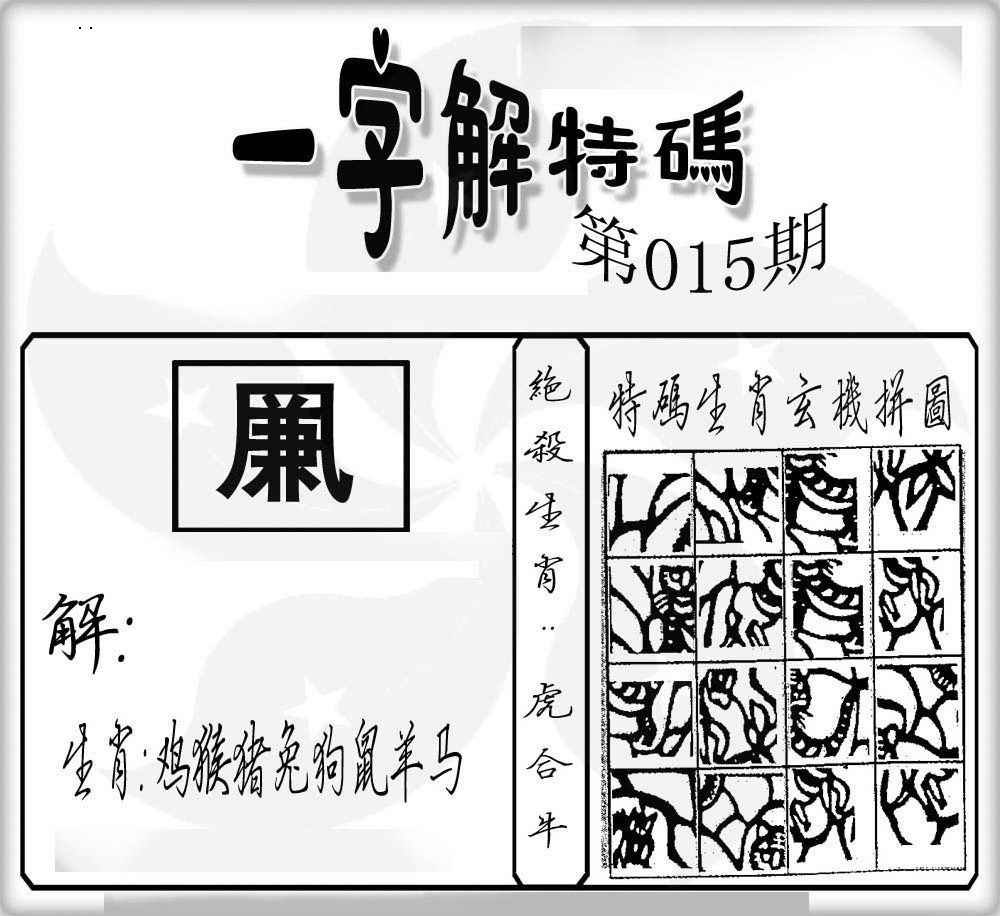 一字解特碼
第015期
解:
生肖:鸡猴猪兔狗鼠羊马
絶殺生肖:虎合牛
特碼生肖玄機拼圖